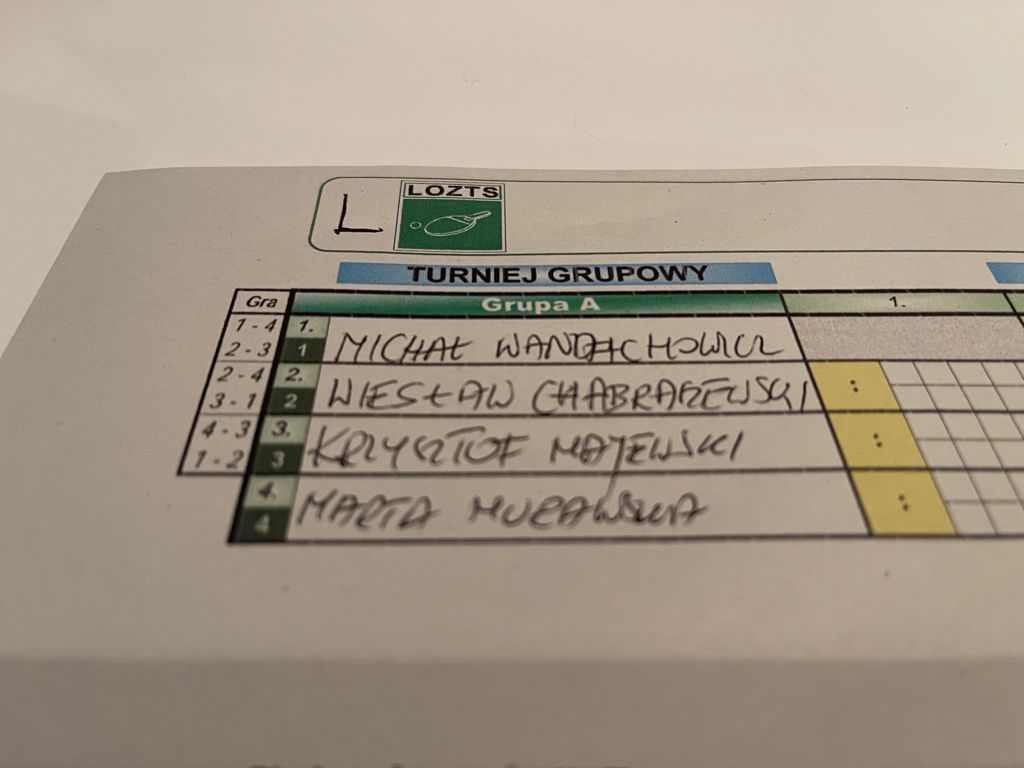 L
LOZTS
TURNIEJ GRUPOWY
Gra Grupa A 1.
1 - 4
2 - 3
1.
1
MICHAŁ
2 - 4
3 - 1
2.
2
WIESŁAW CHABRARZEWSKI
:
4 - 3
1 - 2
3.
3
KRZYSZTOF MAJEWSKI
:
4.
4
MARTA MURAWSKA
: